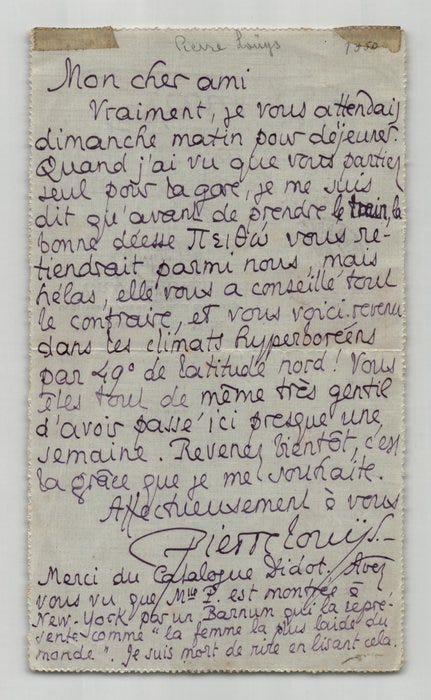 Pierre Louÿs
1350
Mon cher ami
Vraiment, je vous attendais
dimanche matin pour déjeuner.
Quand j'ai vu que vous partiez
seul pour la gare, je me suis
dit qu'avant de prendre le train, la
bonne déesse Πειθώ vous re-
tiendrait parmi nous, mais
hélas, elle vous a conseillé tout
le contraire, et vous voici revenu
dans les climats hyperboréens
par 49° de latitude nord! Vous
êtes tout de même très gentil
d'avoir passé ici presque une
semaine. Revenez bientôt, c'est
la grâce que je me souhaite.
Affectueusement à vous
Pierre Louÿs
Merci du Catalogue Didot. Avez
vous vu que Mlle P. est montrée à
New-York par un Barnum qui la repré-
sente comme "la femme la plus laide du
monde". Je suis mort de rire en lisant cela.